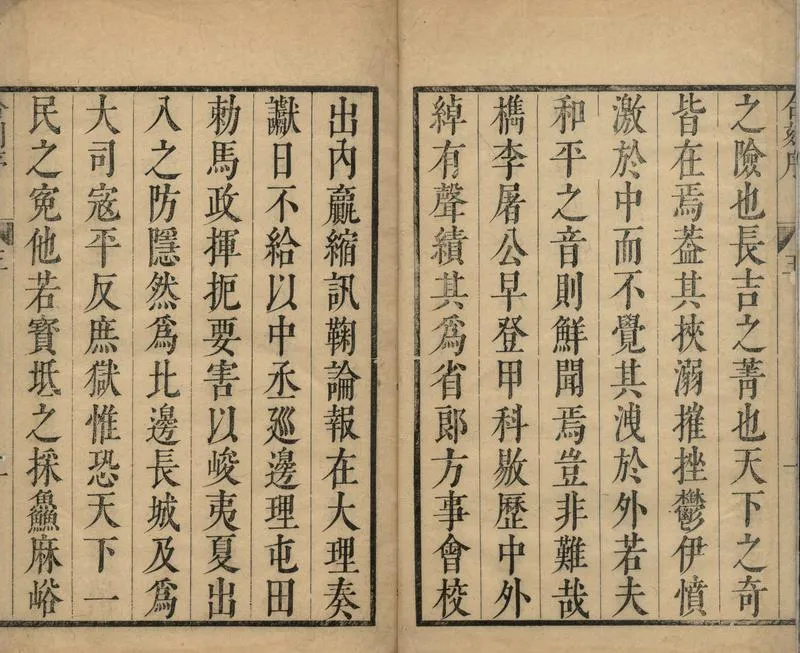 之險也長吉之菁也天下之奇
皆在焉葢其挾溺摧挫鬱伊憤
激於中而不覺其洩於外若夫
和平之音則鮮聞焉豈非難哉
檇李屠公早登甲科敭歷中外
綽有聲績其爲省郎方事會校
出內贏縮訊鞠論報在大理奏
讞日不給以中丞廵邊理屯田
勑馬政揮扼要害以峻夷夏出
入之防隱然爲北邊長城及爲
大司寇平反庶獄惟恐天下一
民之寃他若寳坻之採鱻麻峪